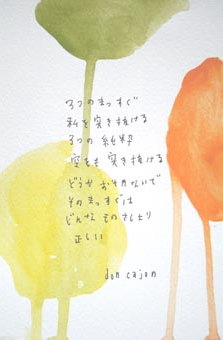 3つのまっすぐ
私を突き抜ける
3つの純粋
空をも突き抜ける
どうかおそれないで
そのまっすぐは
どんなものさしより
正しい
don cajon